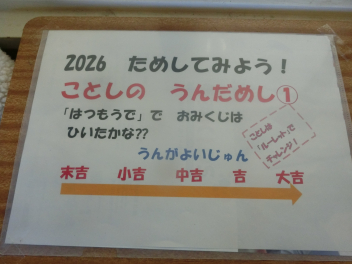 2026 ためしてみよう！
ことしの うんだめし①
「はつもうで」で おみくじは
ひいたかな??
ことしは
「ルーレット」で
チャレンジ！
うんがよいじゅん
末吉 小吉 中吉 吉 大吉